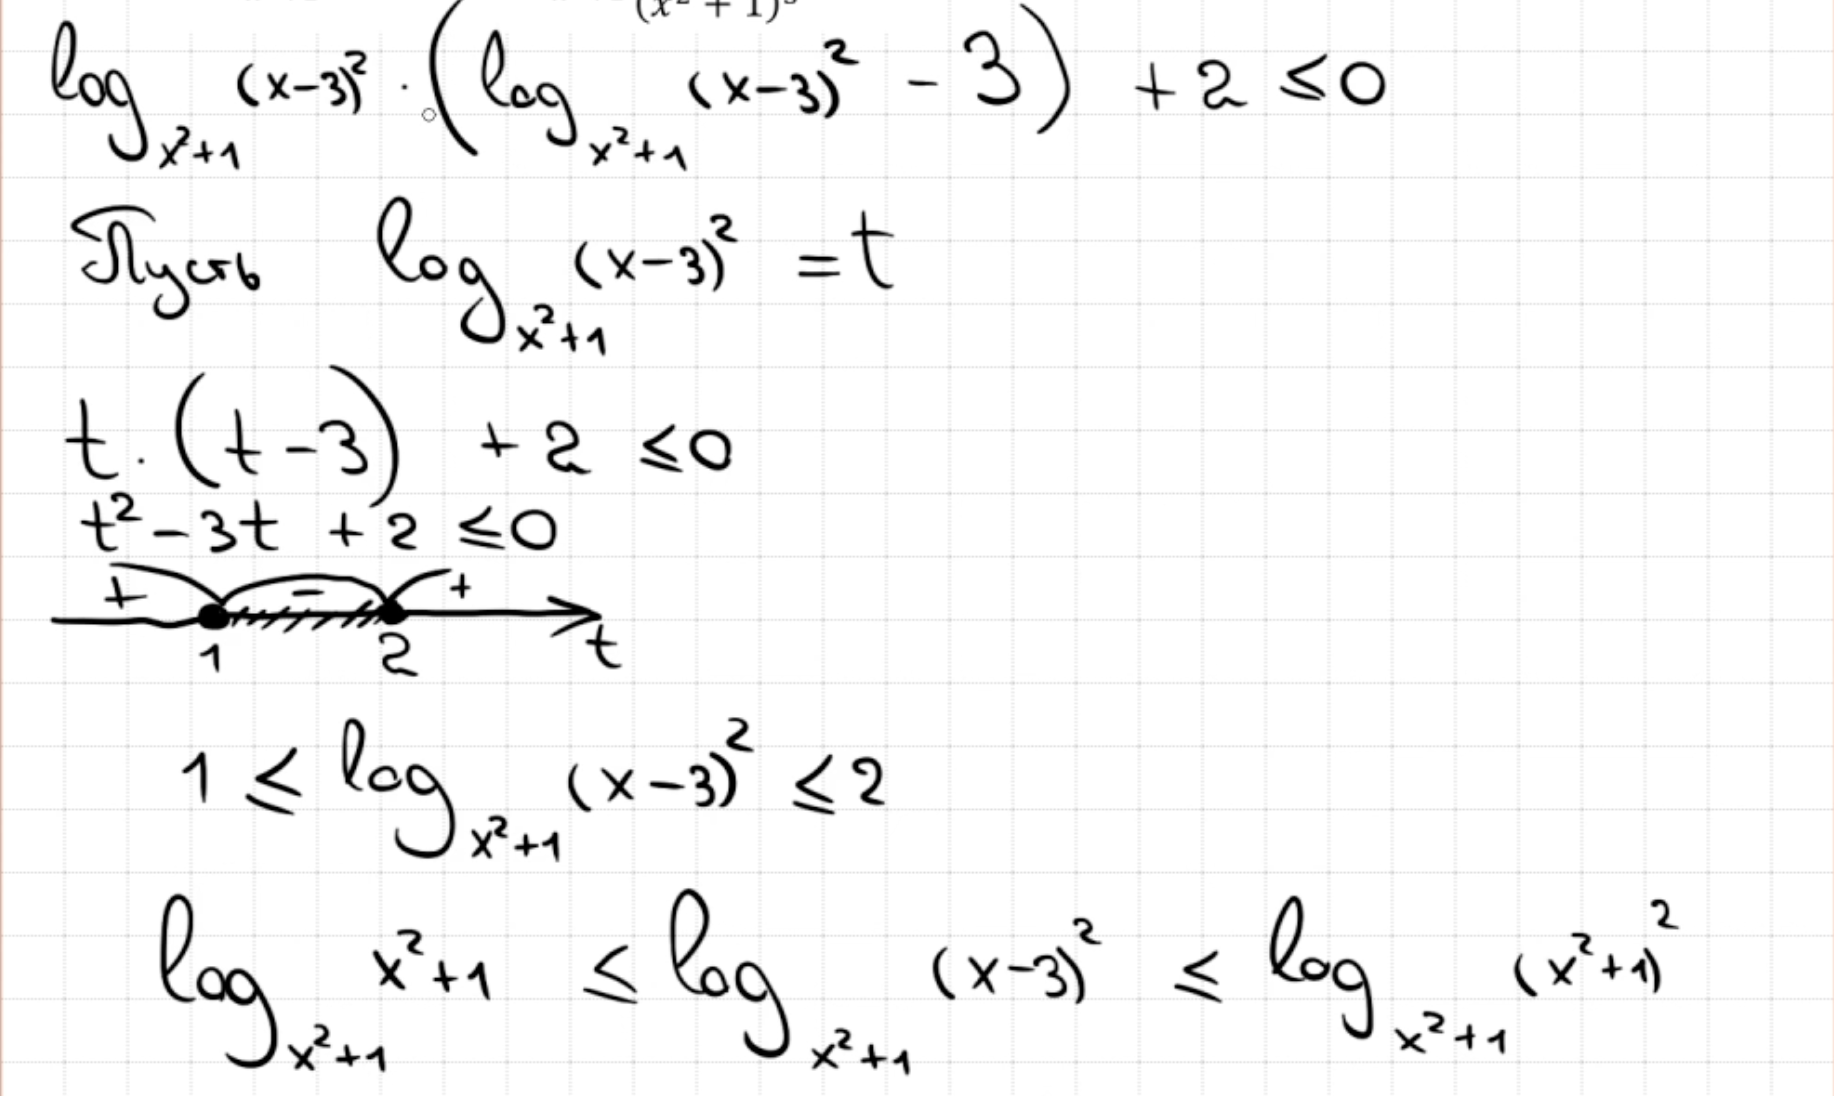 (x² + 1)³
log_{x²+1} (x-3)² · (log_{x²+1} (x-3)² - 3) + 2 ≤ 0
Пусть log_{x²+1} (x-3)² = t
t · (t-3) + 2 ≤ 0
t² - 3t + 2 ≤ 0
+ - +
1 2 t
1 ≤ log_{x²+1} (x-3)² ≤ 2
log_{x²+1} x²+1 ≤ log_{x²+1} (x-3)² ≤ log_{x²+1} (x²+1)²